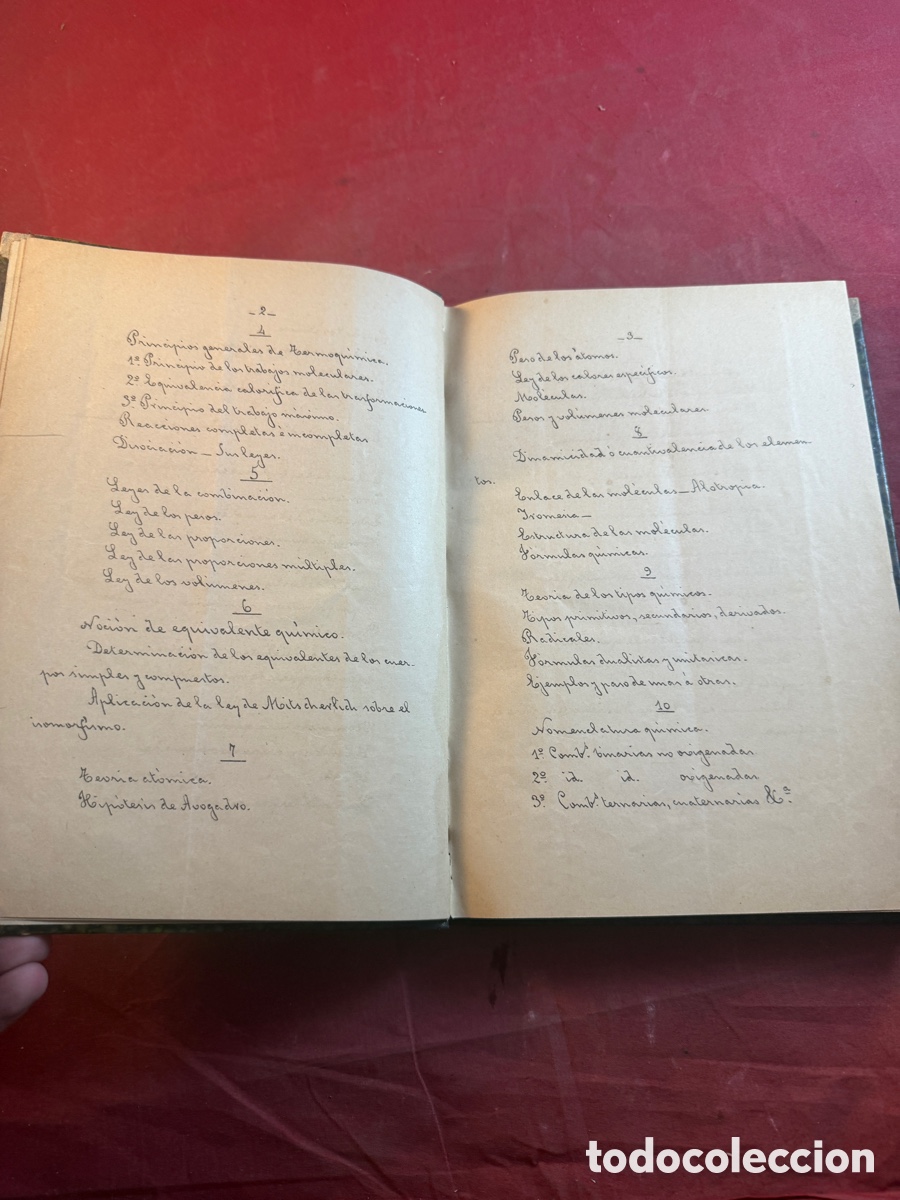 -2-
4
Principios generales de Termoquímica.
1º Principio de los trabajos moleculares.
2º Equivalencia calorífica de las trasformaciones
3º Principio del trabajo máximo.
Reacciones completas è incompletas
Disociación – Sus leyes.
5
Leyes de la combinación.
Ley de los pesos.
Ley de las proporciones.
Ley de las proporciones multiples.
Ley de los volumenes.
6
Noción de equivalente químico.
Determinación de los equivalentes de los cuer-
pos simples y compuestos.
Aplicación de la ley de Mitscherlich sobre el
isomorfismo.
7
Teoria atómica.
Hipótesis de Avogadro.
-3-
Peso de los átomos.
Ley de los calores específicos.
Moléculas.
Pesos y volúmenes moleculares.
8
Dinamicidad ó cuantivalencia de los elemen
tos.
Enlace de las moléculas – Alotropia.
Isomeria –
Estructura de las moléculas.
Fórmulas químicas.
9
Teoria de los tipos químicos.
Tipos primitivos, secundarios, derivados.
Radicales.
Fórmulas dualistas y unitarias.
Ejemplos y paso de unas à otras.
10
Nomenclatura química.
1º Combs. binarias no oxigenadas
2º id. id. oxigenadas
3º Combs. ternarias, cuaternarias &ª.
todocoleccion